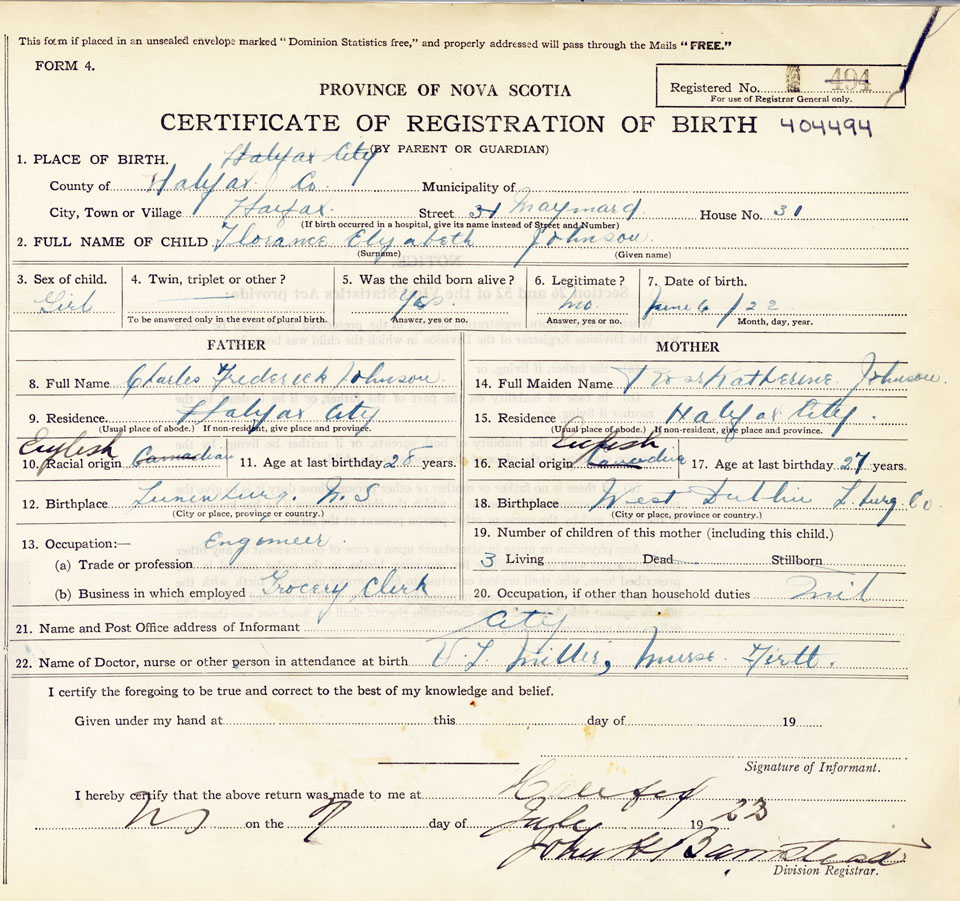 This form if placed in an unsealed envelope marked "Dominion Statistics free," and properly addressed will pass through the Mails "FREE."
FORM 4.
PROVINCE OF NOVA SCOTIA
Registered No. 494
For use of Registrar General only.
CERTIFICATE OF REGISTRATION OF BIRTH 404494
(BY PARENT OR GUARDIAN)
1. PLACE OF BIRTH. Halifax City
County of Halifax Co. Municipality of
City, Town or Village Haifax Street 31 Maynard House No. 31
(If birth occurred in a hospital, give its name instead of Street and Number)
2. FULL NAME OF CHILD Florance Elizabeth Johnson
(Surname) (Given name)
3. Sex of child. 4. Twin, triplet or other? 5. Was the child born alive? 6. Legitimate? 7. Date of birth.
Girl Yes no June 6/22
To be answered only in the event of plural birth. Answer, yes or no. Answer, yes or no. Month, day, year.
FATHER MOTHER
8. Full Name Charles Frederick Johnson 14. Full Maiden Name Rose Katherine Johnson
9. Residence Halifax City 15. Residence Halifax City.
(Usual place of abode.) If non-resident, give place and province. (Usual place of abode.) If non-resident, give place and province.
English English
10. Racial origin Canadian 11. Age at last birthday 28 years. 16. Racial origin 17. Age at last birthday 27 years.
12. Birthplace Lunenburg. N.S 18. Birthplace West Dublin L.burg.Co
(City or place, province or country.) (City or place, province or country.)
13. Occupation:— Engineer 19. Number of children of this mother (including this child.)
(a) Trade or profession 3 Living Dead Stillborn
(b) Business in which employed Grocery Clerk 20. Occupation, if other than household duties nil
21. Name and Post Office address of Informant City
22. Name of Doctor, nurse or other person in attendance at birth Miller, nurse Firtt.
I certify the foregoing to be true and correct to the best of my knowledge and belief.
Given under my hand at this day of 19
Signature of Informant.
I hereby certify that the above return was made to me at Halifax
NS on the 9 day of July 1923
John H Barnstead
Division Registrar.